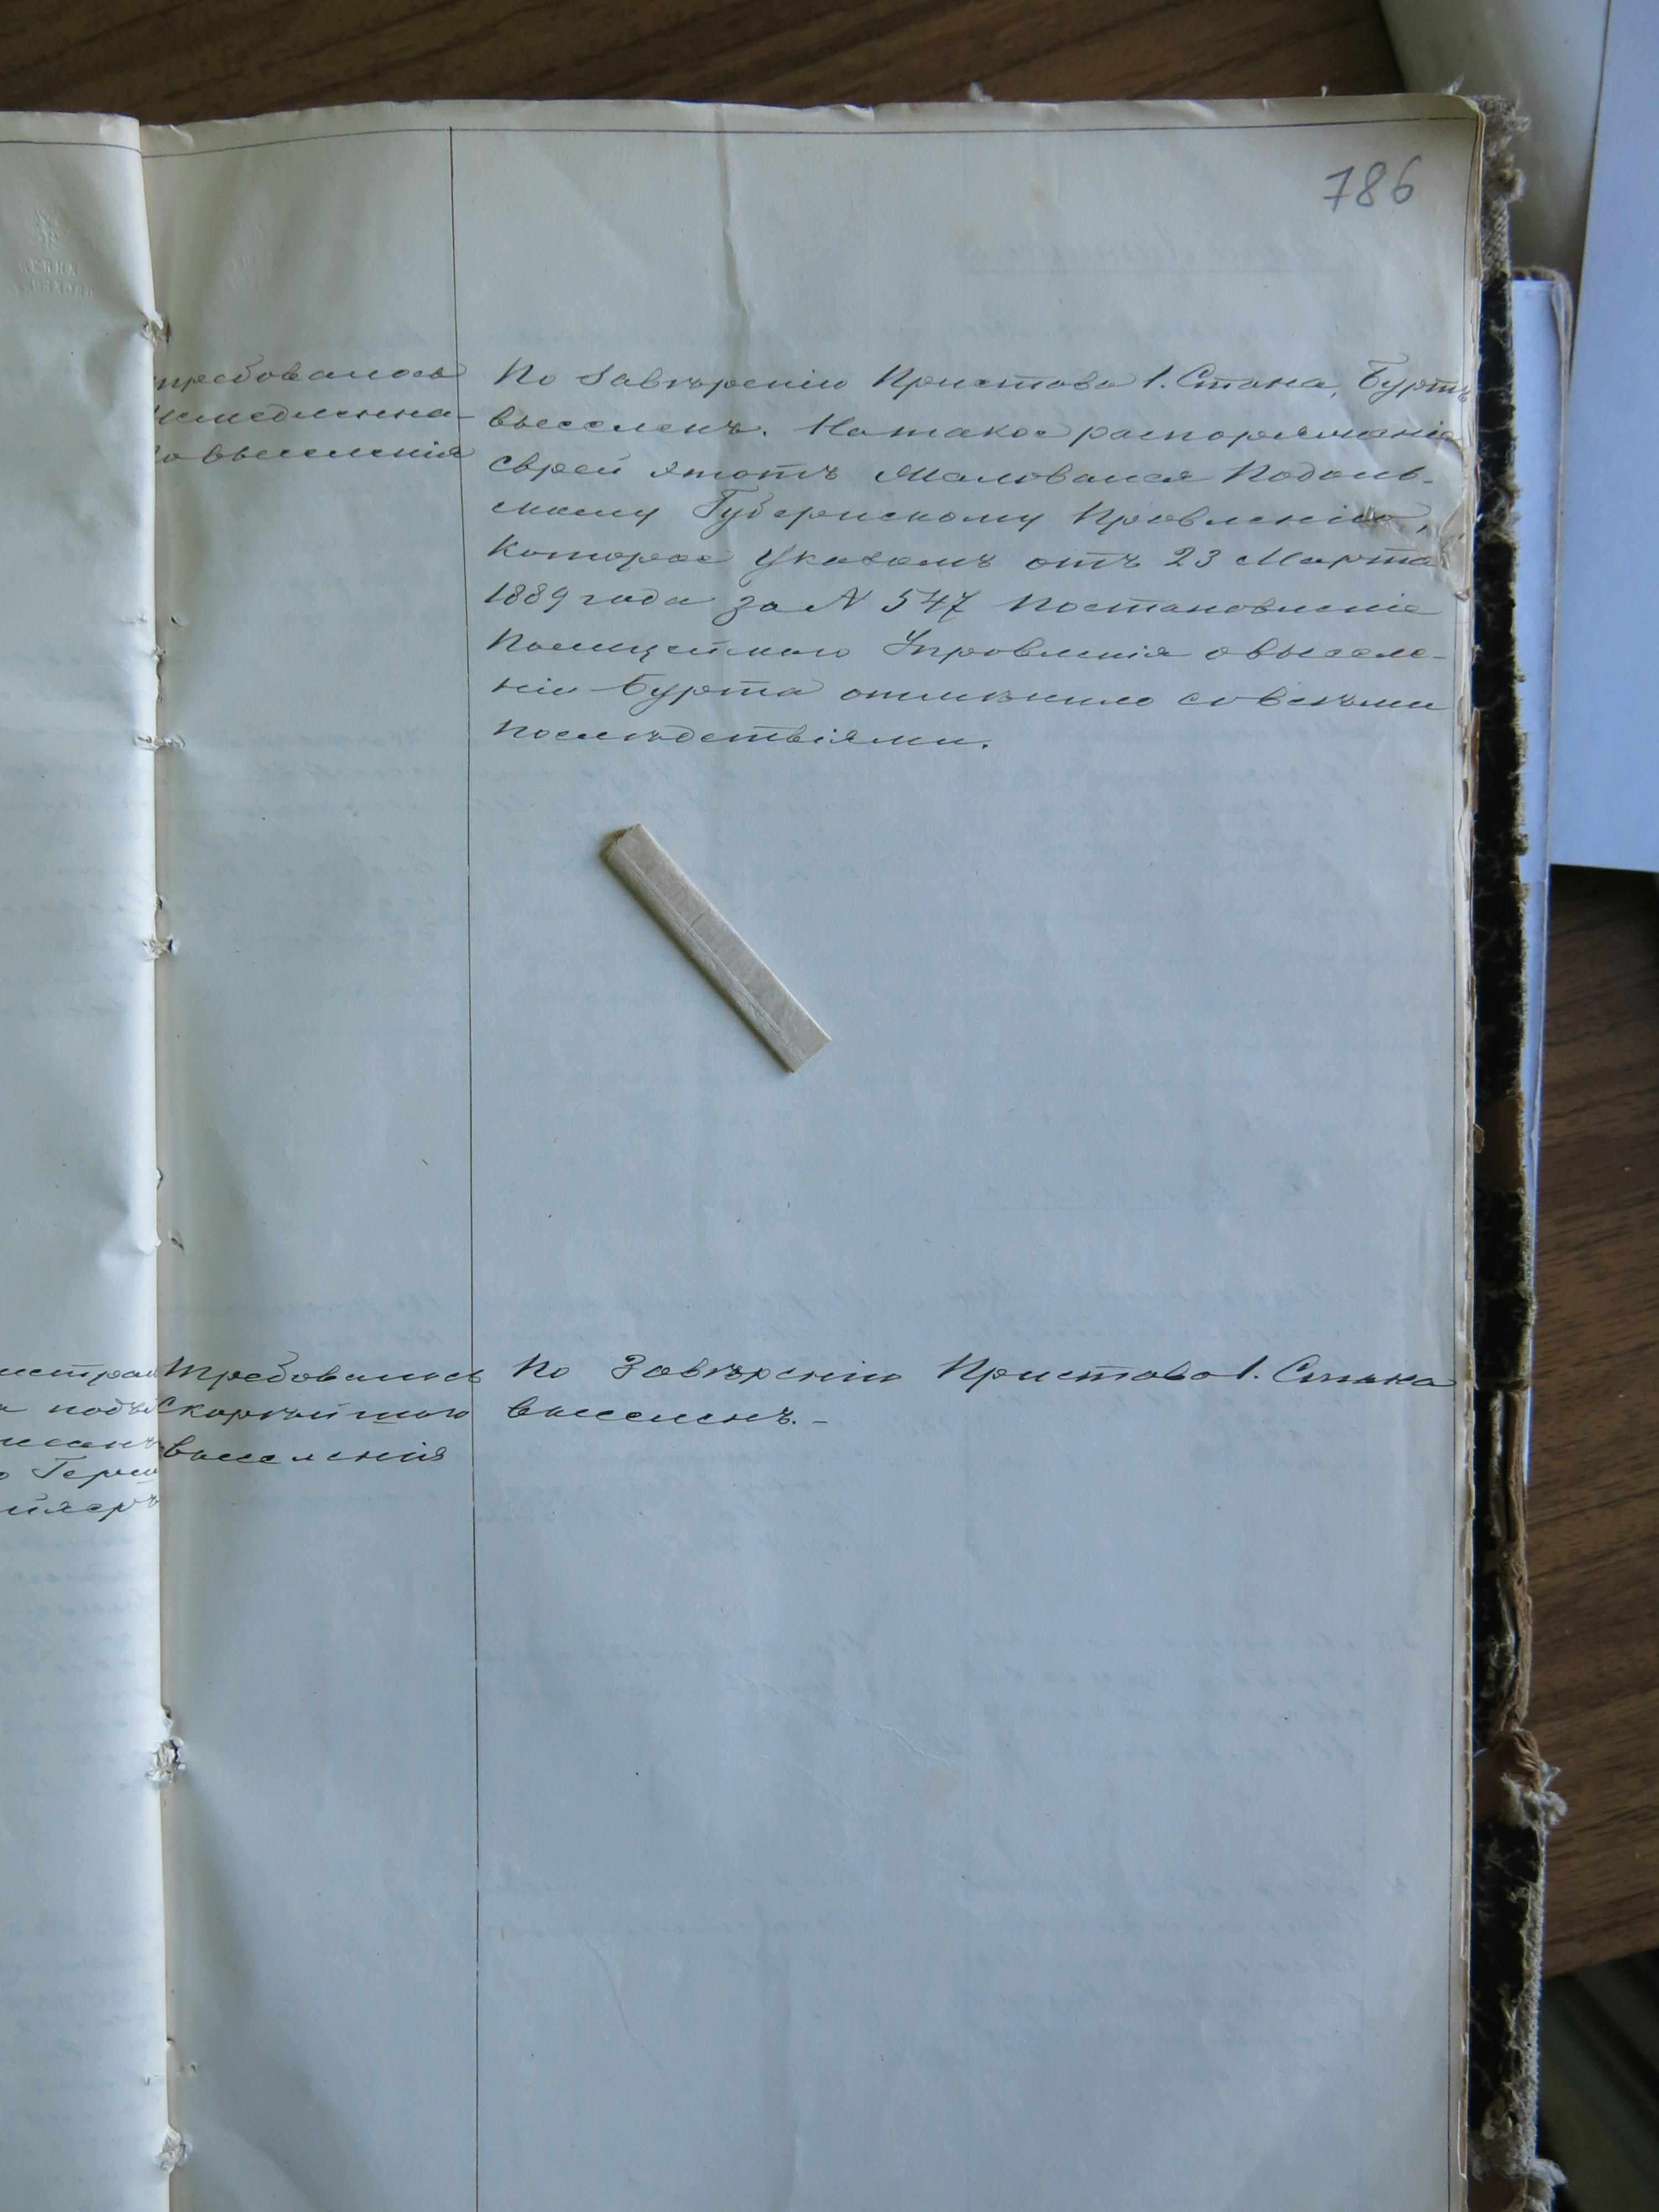 786
требовалось
немедленна-
го выселенія
По завѣренію Пристава 1. Стана, Буртъ
выселенъ. На такое распоряженіе
еврей этотъ жаловался Подоль-
скому Губернскому Правленію,
которое Указомъ отъ 23 Марта
1889 года за N 547 постановленіе
Полицейскаго Управленія о выселе-
ніи Бурта отмѣнило со всѣми
послѣдствіями.
Требовалось
скорѣйшаго
выселенія
По завѣренію Пристава 1. Стана
выселенъ. -